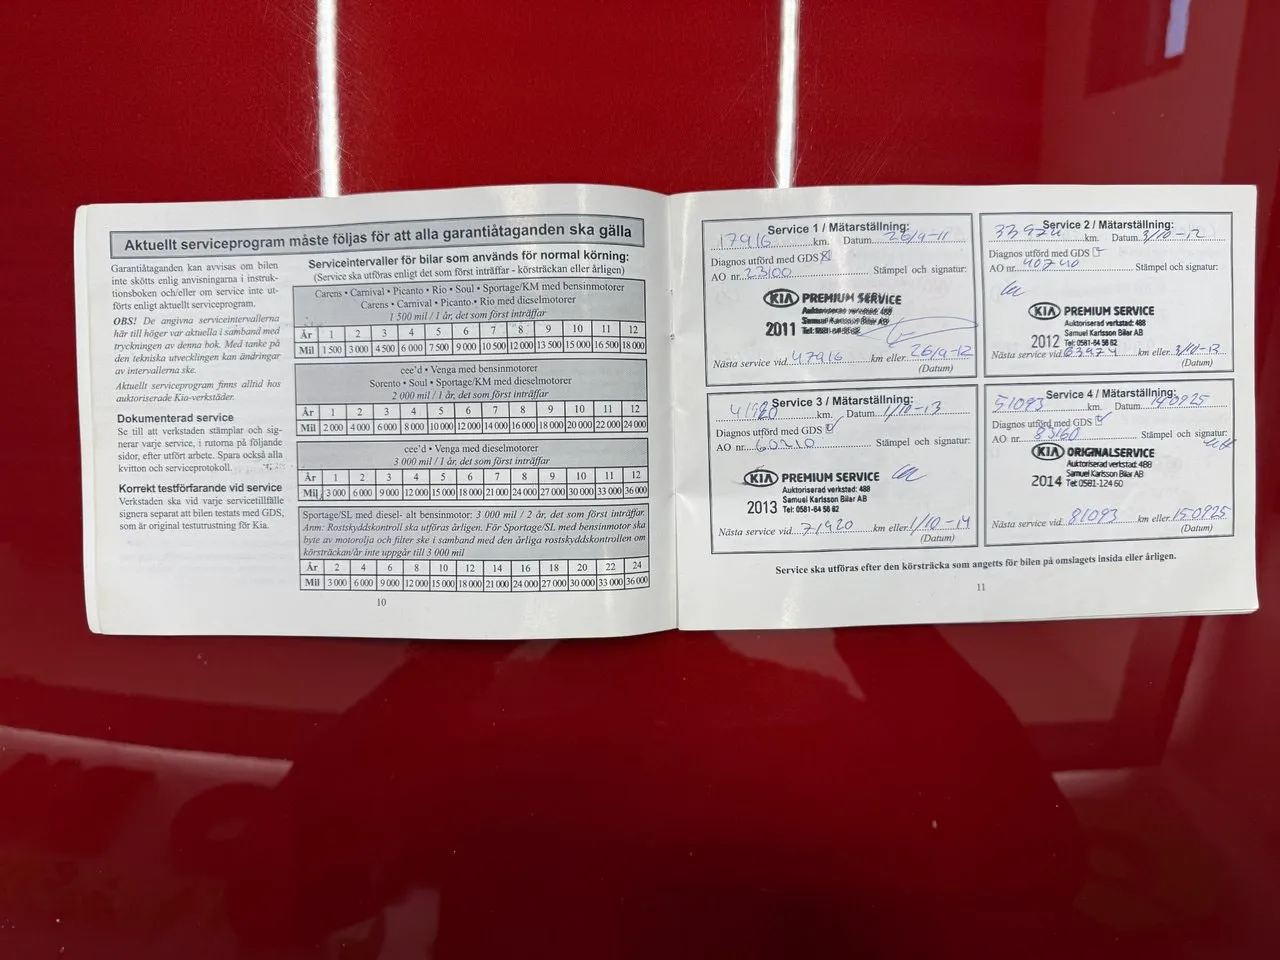 Aktuellt serviceprogram måste följas för att alla garantiåtaganden ska gälla
Garantiåtaganden kan avvisas om bilen
inte skötts enlig anvisningarna i instruk-
tionsboken och/eller om service inte ut-
förts enligt aktuellt serviceprogram.
OBS! De angivna serviceintervallerna
här till höger var aktuella i samband med
tryckningen av denna bok. Med tanke på
den tekniska utvecklingen kan ändringar
av intervallerna ske.
Aktuellt serviceprogram finns alltid hos
auktoriserade Kia-verkstäder.
Dokumenterad service
Se till att verkstaden stämplar och sig-
nerar varje service, i rutorna på följande
sidor, efter utfört arbete. Spara också alla
kvitton och serviceprotokoll.
Korrekt testförfarande vid service
Verkstaden ska vid varje servicetillfälle
signera separat att bilen testats med GDS,
som är original testutrustning för Kia.
Serviceintervaller för bilar som används för normal körning:
(Service ska utföras enligt det som först inträffar - körsträckan eller årligen)
Carens • Carnival • Picanto • Rio • Soul • Sportage/KM med bensinmotorer
Carens • Carnival • Picanto • Rio med dieselmotorer
1 500 mil / 1 år, det som först inträffar
År 1 2 3 4 5 6 7 8 9 10 11 12
Mil 1 500 3 000 4 500 6 000 7 500 9 000 10 500 12 000 13 500 15 000 16 500 18 000
cee'd • Venga med bensinmotorer
Sorento • Soul • Sportage/KM med dieselmotorer
2 000 mil / 1 år, det som först inträffar
År 1 2 3 4 5 6 7 8 9 10 11 12
Mil 2 000 4 000 6 000 8 000 10 000 12 000 14 000 16 000 18 000 20 000 22 000 24 000
cee'd • Venga med dieselmotorer
3 000 mil / 1 år, det som först inträffar
År 1 2 3 4 5 6 7 8 9 10 11 12
Mil 3 000 6 000 9 000 12 000 15 000 18 000 21 000 24 000 27 000 30 000 33 000 36 000
Sportage/SL med diesel- alt bensinmotor: 3 000 mil / 2 år, det som först inträffar.
Anm: Rostskyddskontroll ska utföras årligen. För Sportage/SL med bensinmotor ska
byte av motorolja och filter ske i samband med den årliga rostskyddskontrollen om
körsträckan/år inte uppgår till 3 000 mil
År 2 4 6 8 10 12 14 16 18 20 22 24
Mil 3 000 6 000 9 000 12 000 15 000 18 000 21 000 24 000 27 000 30 000 33 000 36 000
10
Service 1 / Mätarställning:
17916 km. Datum 26/9-11
Diagnos utförd med GDS
AO nr. 23100 Stämpel och signatur:
KIA PREMIUM SERVICE
Auktoriserad verkstad: 488
Samuel Karlsson Bilar AB
2011 Tel: 0581-64 56 62
Nästa service vid 47916 km eller 26/9-12
(Datum)
Service 2 / Mätarställning:
33974 km. Datum 3/10-12
Diagnos utförd med GDS
AO nr 40740 Stämpel och signatur:
KIA PREMIUM SERVICE
Auktoriserad verkstad: 488
Samuel Karlsson Bilar AB
2012 Tel: 0581-64 56 62
Nästa service vid 63974 km eller 3/10-13
(Datum)
Service 3 / Mätarställning:
41920 km. Datum 1/10-13
Diagnos utförd med GDS
AO nr. 60210 Stämpel och signatur:
KIA PREMIUM SERVICE
Auktoriserad verkstad: 488
Samuel Karlsson Bilar AB
2013 Tel: 0581-64 56 62
Nästa service vid 71920 km eller 1/10-14
(Datum)
Service 4 / Mätarställning:
51093 km. Datum 140925
Diagnos utförd med GDS
AO nr 83160 Stämpel och signatur:
KIA ORIGINALSERVICE
Auktoriserad verkstad: 488
Samuel Karlsson Bilar AB
2014 Tel: 0581-124 60
Nästa service vid 81093 km eller 150925
(Datum)
Service ska utföras efter den körsträcka som angetts för bilen på omslagets insida eller årligen.
11